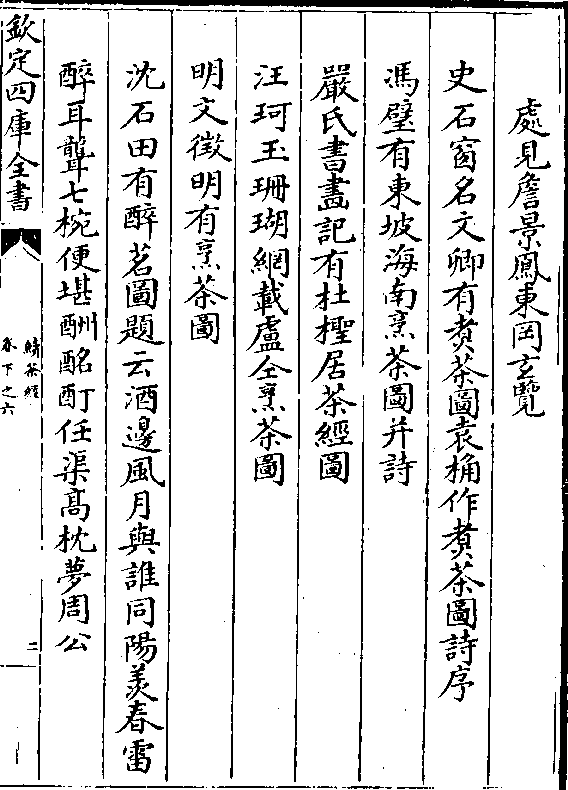 處見詹景鳳東岡玄覽
史石窗名文卿有煑茶圖袁桷作煑茶圖詩序
馮璧有東坡海南烹茶圖并詩
嚴氏書畫記有杜檉居茶經圖
汪珂玉珊瑚網載盧仝烹茶圖
明文徴明有烹茶圖
沈石田有醉茗圖題云酒邊風月與誰同陽羨春雷
醉耳聾七椀便堪酬酩酊任渠髙枕夢周公
欽定四庫全書
續茶經
卷下之六
二